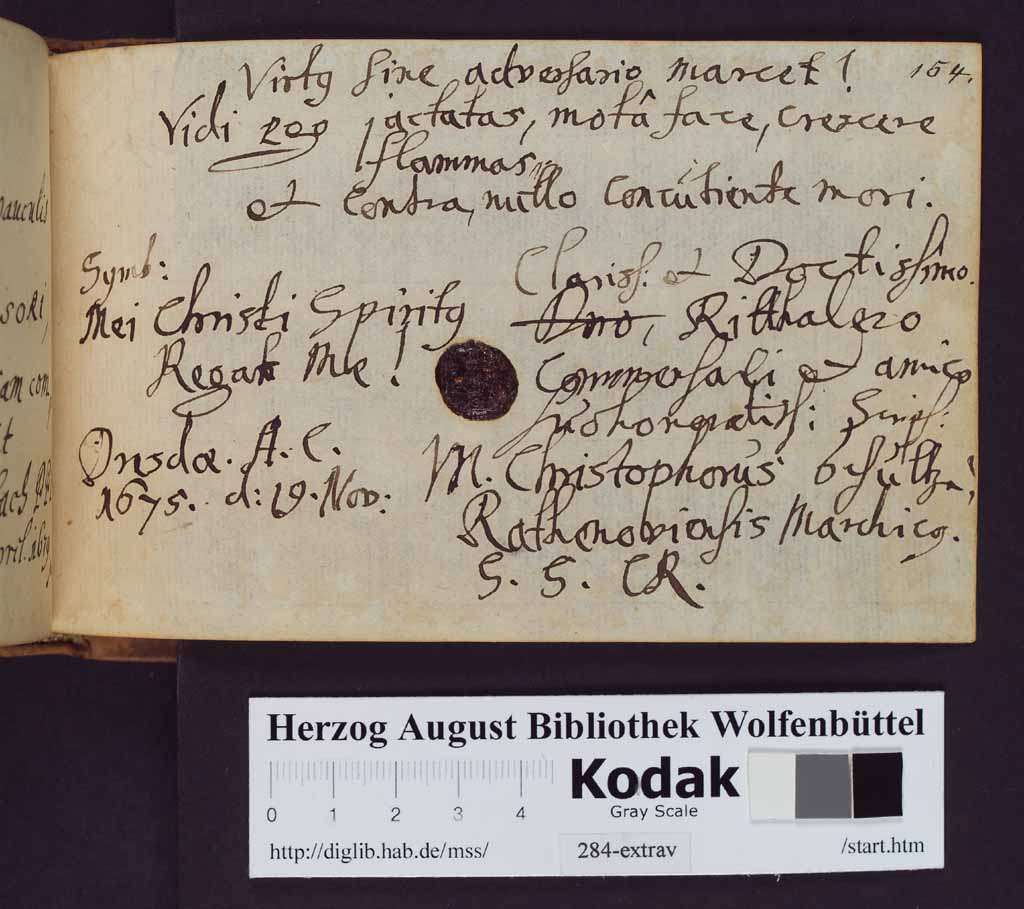 154.
Virtus sine adversario marcet!
Vidi ego jactatas, motâ face, crescere
flammas,
et contra, nullo concutiente mori.
Symb:
Mei Christi Spiritus
Regat Me!
Dresdæ. A. C.
1675. d: 19. Nov:
Clariss. et Doctissimo.
Dno, Ritthalero
Commensali et amico
suo honoratiss: Scrips:
M. Christophorus Schultze,
Rathenoviensis Marchicus.
S. S. CR.
pauculis
Herzog August Bibliothek Wolfenbüttel
0 1 2 3 4
Kodak
Gray Scale
http://diglib.hab.de/mss/
284-extrav
/start.htm